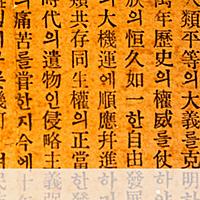 人類平等의大義를克明하
萬年歷史의權威를仗하
族의恒久如一한自由發展
의大機運에順應幷進하기
類共存同生權의正當한發
時代의遺物인侵略主義强
의痛苦를嘗한지今에十年